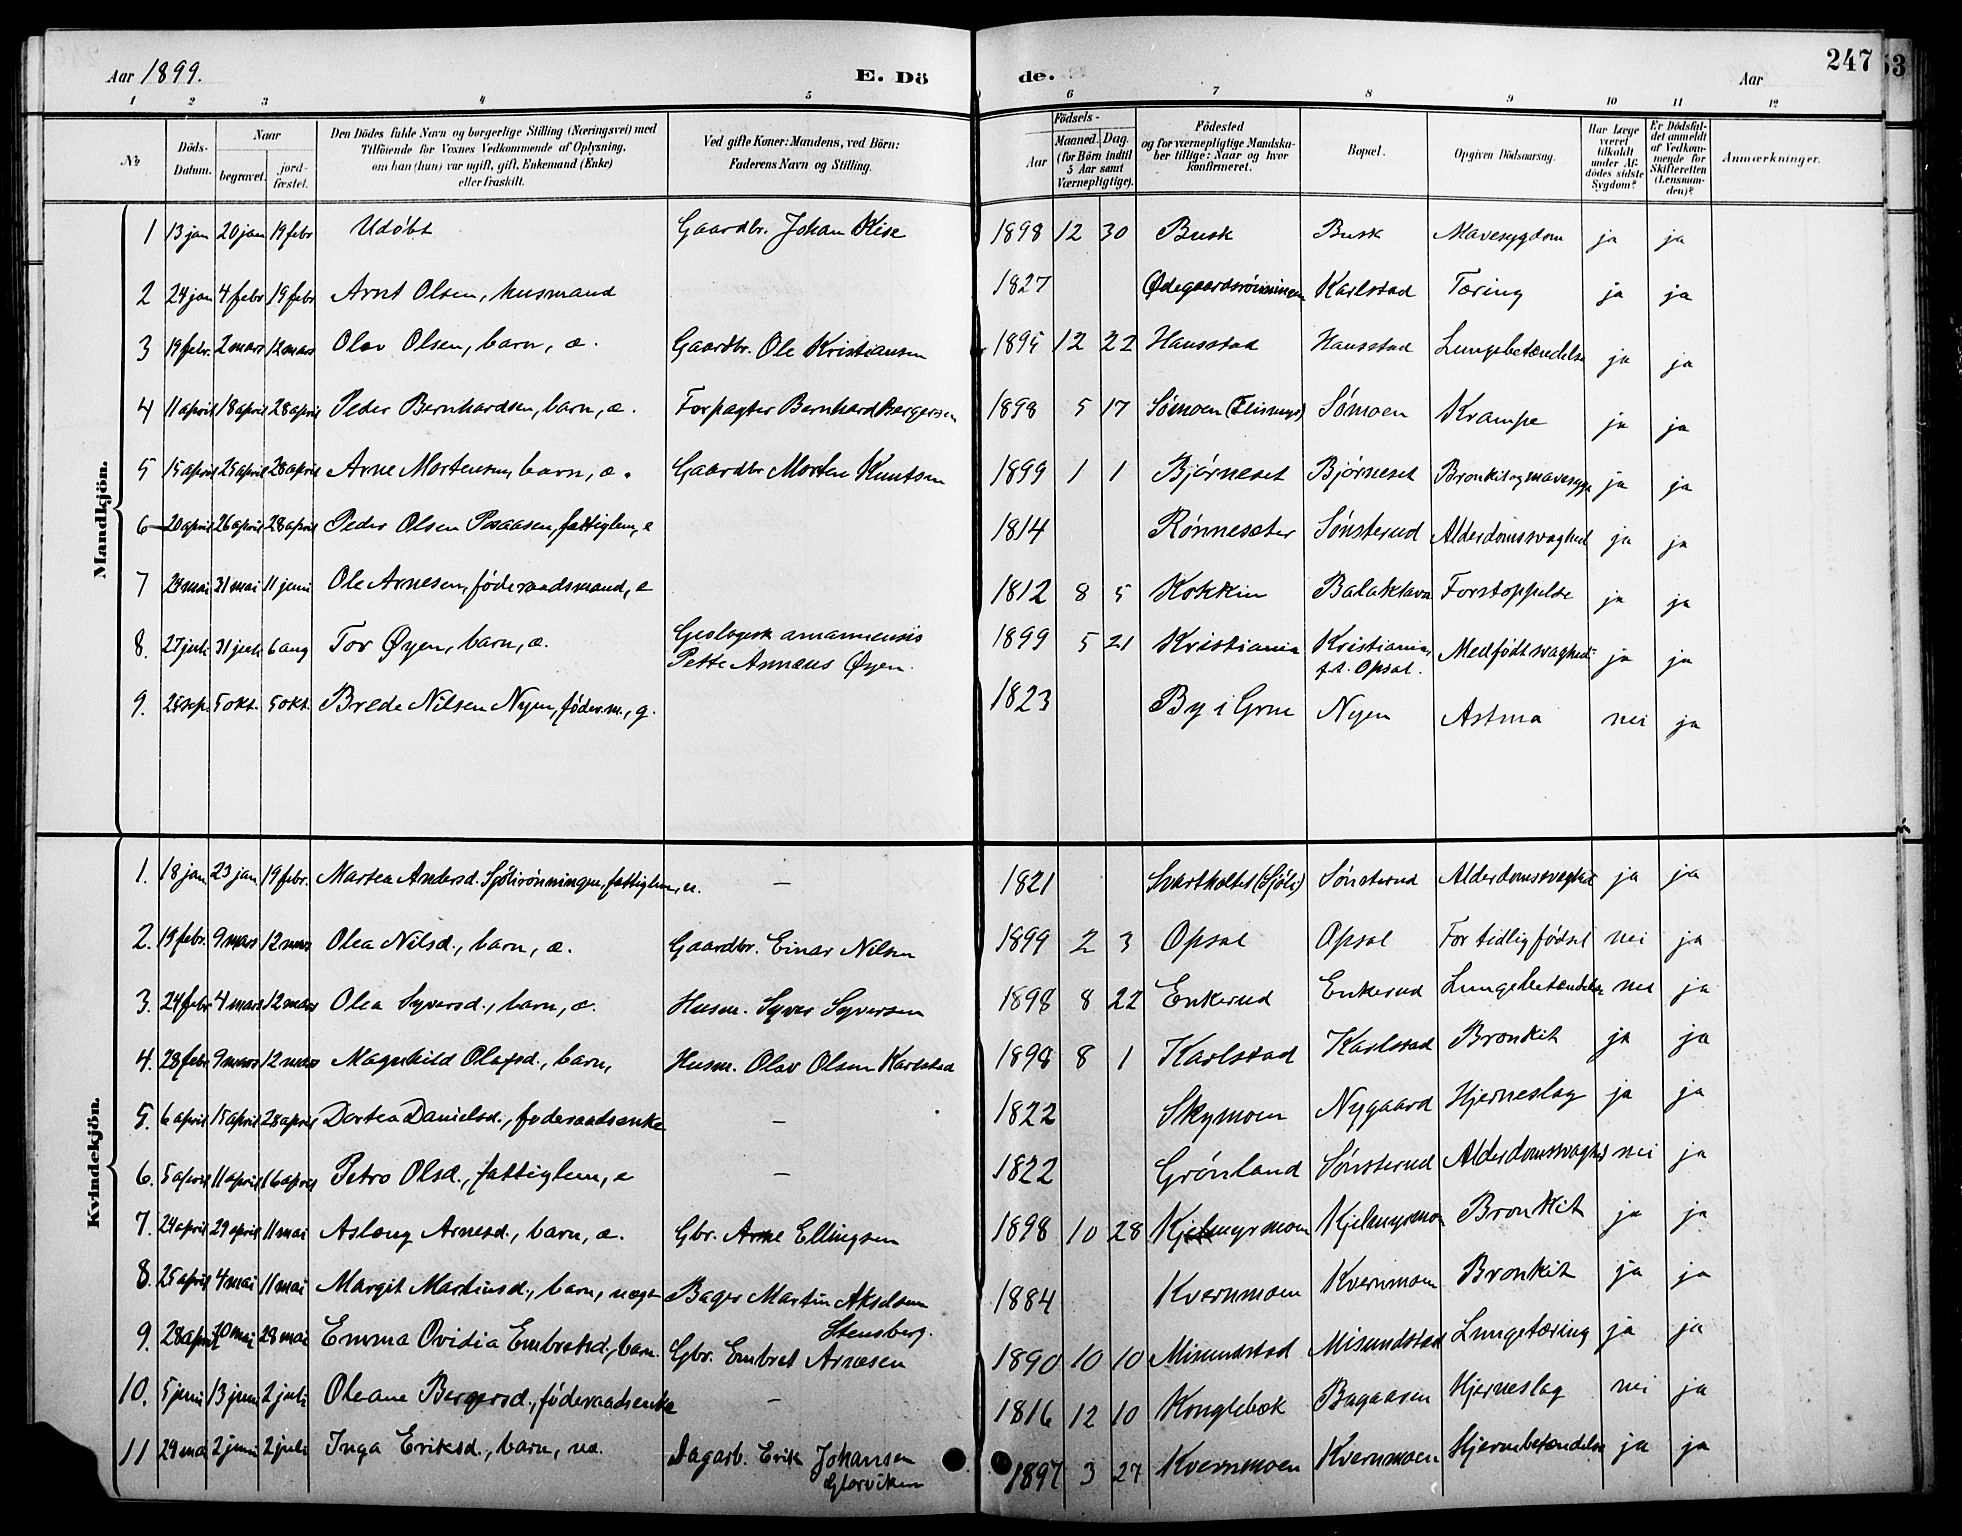 Aar 1899. E. Dö de. Aar 247
53
1 2 3 4 5 6 7 8 9 10 11 12
No Döds-Datum. Naar begravet. jord-fæstet. Den Dödes fulde Navn og borgerlige Stilling (Næringsvei) med Tilföiende for Voxnes Vedkommende af Oplysning, om han (hun) var ugift, gift, Enkemand (Enke) eller fraskilt. Ved gifte Koner: Mandens, ved Börn: Faderens Navn og Stilling. Födsels- Aar Maaned. Dag. (for Börn indtil 5 Aar samt Værnepligtige). Födested og for værnepligtige Mandskaber tillige: Naar og hvor konfirmeret. Bopæl. Opgiven Dödsaarsag. Har Læge været tilkaldt under Afdödes sidste Sygdom? Er Dödsfaldet anmeldt af Vedkommende for Skifteretten (Lensmanden)? Anmærkninger.
Mandkjön.
1 13 jan 20 jan 19 febr Udöbt Gaardbr. Johan Kise 1898 12 30 Busk Busk Mavesygdom ja ja
2 24 jan 4 febr 19 febr Arnt Olsen, husmand 1827 Ødegaardsrönningen Karlstad Tæring ja ja
3 19 febr. 2 mars 12 mars Olav Olsen, barn, æ. Gaardbr. Ole Kristiansen 1895 12 22 Hansstad Hansstad Lungebetændelse ja ja
4 11 april 18 april 28 april Peder Bernhardsen, barn, æ. Forpagter Bernhard Bergersen 1898 5 17 Sömoen (Flismyr) Sömoen Krampe ja ja
5 15 april 25 april 28 april Arne Mortensen, barn, æ. Gaardbr Morten Knutsen 1899 1 1 Björneset Björneset Bronkit og mavesyge ja ja
6 20 april 26 april 28 april Peder Olsen Paaasen, fattiglem, e 1814 Rönnesæter Sönsterud Alderdomssvaghed ja ja
7 23 mai 31 mai 11 juni Ole Arnesen, föderaadsmand, e 1812 8 5 Kokkin Balaklava Forstoppelse ja ja
8. 27 juli 31 juli 6 aug Tor Øyen, barn, æ. Geologisk amanuensis 1899 5 21 Kristiania Kristiania, Medfödt svaghed ja ja
Peter Annæus Øyen. f.t. Opsal.
9. 25 sep. 5 okt. 5 okt. Brede Nilsen Nyen, föder.m., g. 1823 By i Grue Nyen Astma nei ja
Kvindekjön.
1. 18 jan 23 jan 19 febr. Martea Andersd. Sjölirönningen, fattiglem, u. — 1821 Svartholtet (Sjöli) Sönsterud Alderdomssvaghed ja ja
2. 19 febr. 9 mars 12 mars Olea Nilsd., barn, æ. Gaardbr. Einar Nilsen 1899 2 3 Opsal Opsal For tidlig födsel nei ja
3. 24 febr 4 mars 12 mars Olea Syversd., barn, æ. Husm. Syver Syversen 1898 8 22 Enkerud Enkerud Lungebetændelse nei ja
4. 28 febr 9 mars 12 mars Magnhild Olafsd., barn, Husm. Olav Olsen Karlstad 1898 8 1 Karlstad Karlstad Bronkit ja ja
5. 6 april 15 april 28 april Dortea Danielsd., föderaadsenke — 1822 Skymoen Nygaard Hjerneslag ja ja
6. 5 april 11 april 16 april Petro Olsd., fattiglem, e — 1822 Grönland Sönsterud Alderdomssvaghed nei ja
7. 24 april 29 april 11 mai Aslaug Arnesd., barn, æ. Gbr. Arne Ellingsen 1898 10 28 Kjelmyrmoen Kjelmyrmoen Bronkit ja ja
8. 25 april 4 mai 11 mai Margit Martinsd., barn, uægte Bager Martin Akselsen 1884 Kvernmoen Kvernmoen Bronkit ja ja
Stensberg.
9. 28 april 10 mai 28 mai Emma Ovidia Embretsd., barn. Gbr. Embret Arnesen 1890 10 10 Misundstad Misundstad Lungetæring ja ja
10. 5 juni 13 juni 2 juli Oleane Bergersd., föderaadsenke — 1816 12 10 Konglebæk Bagaasen Hjerneslag nei ja
11 29 mai 2 juni 2 juli Inga Eriksd., barn, uæ. Dagarb. Erik Johansen 1897 3 27 Kvernmoen Kvernmoen Hjernebetændelse ja ja
Glorviken